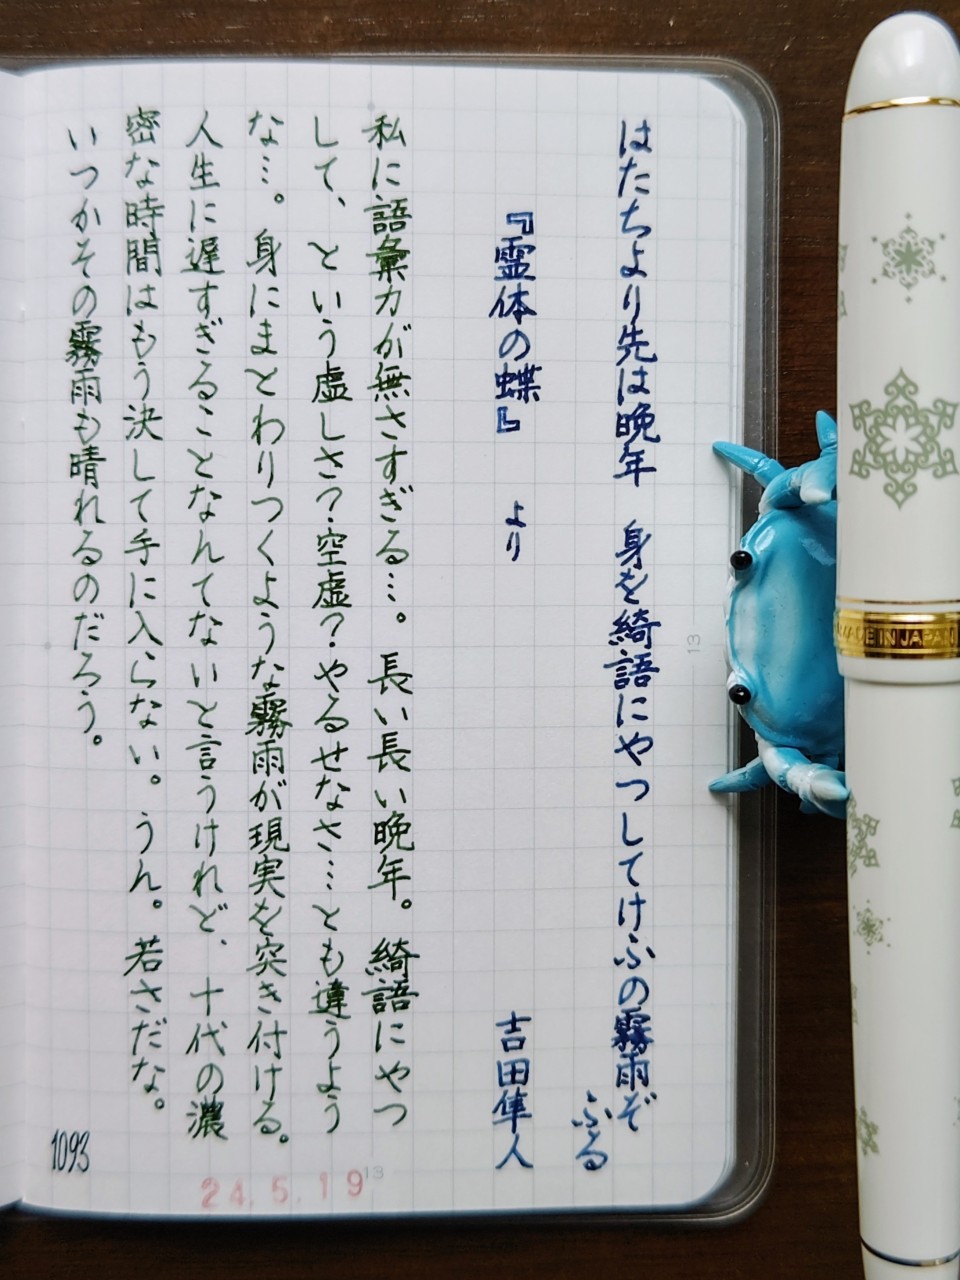 はたちより先は晩年　身を綺語にやつしてけふの霧雨ぞ
ふる
『霊体の蝶』　より　吉田隼人
私に語彙力が無さすぎる…。長い長い晩年。綺語にやつ
して、という虚しさ？空虚？やるせなさ…とも違うよう
な…。身にまとわりつくような霧雨が現実を突き付ける。
人生に遅すぎることなんてないと言うけれど、十代の濃
密な時間はもう決して手に入らない。うん。若さだな。
いつかその霧雨も晴れるのだろう。
1093
24.5.19
13
13
MADE IN JAPAN